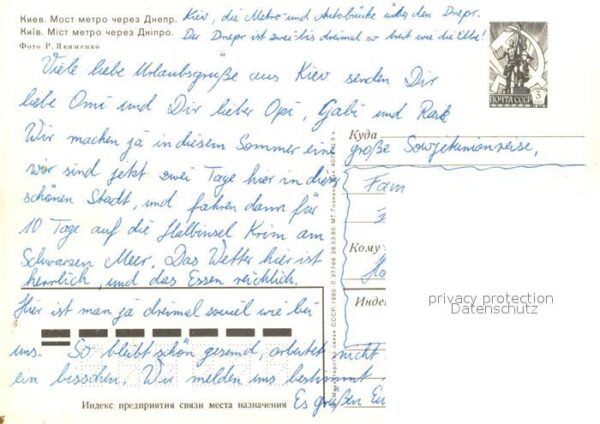 Киев. Мост метро через Днепр.
Київ. Міст метро через Дніпро.
Фото Р. Якименко
Kiev, die Metro- und Autobrücke über den Dnepr.
Der Dnepr ist zwei- bis dreimal so breit wie die Elbe!
ПОЧТА СССР
Viele liebe Urlaubsgrüße aus Kiev senden Dir
liebe Omi und Dir lieber Opi, Gabi und
Wir machen ja in diesem Sommer eine große Sowjetunionreise,
wir sind jetzt zwei Tage hier in dieser
schönen Stadt, und fahren dann für
10 Tage auf die Halbinsel Krim am
Schwarzen Meer. Das Wetter hier ist
herrlich, und das Essen reichlich.
Hier ist man ja dreimal soviel wie bei
uns. So bleibt schön gesund, arbeitet nicht
ein bisschen. Wir melden uns bestimmt
Es grüßen Eu
Куда
Fam
Кому
Ho
Индек
privacy protection
Datenschutz
Индекс предприятия связи места назначения